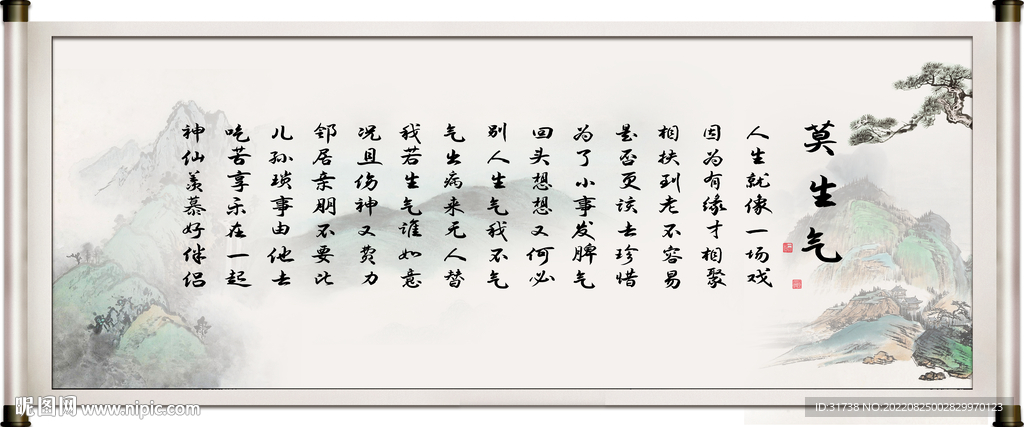 莫生气
人生就像一场戏
因为有缘才相聚
相扶到老不容易
是否更该去珍惜
为了小事发脾气
回头想想又何必
别人生气我不气
气出病来无人替
我若生气谁如意
况且伤神又费力
邻居亲朋不要比
儿孙琐事由他去
吃苦享乐在一起
神仙羡慕好伴侣
昵图网 www.nipic.com
ID:31738 NO:20220825002829970123